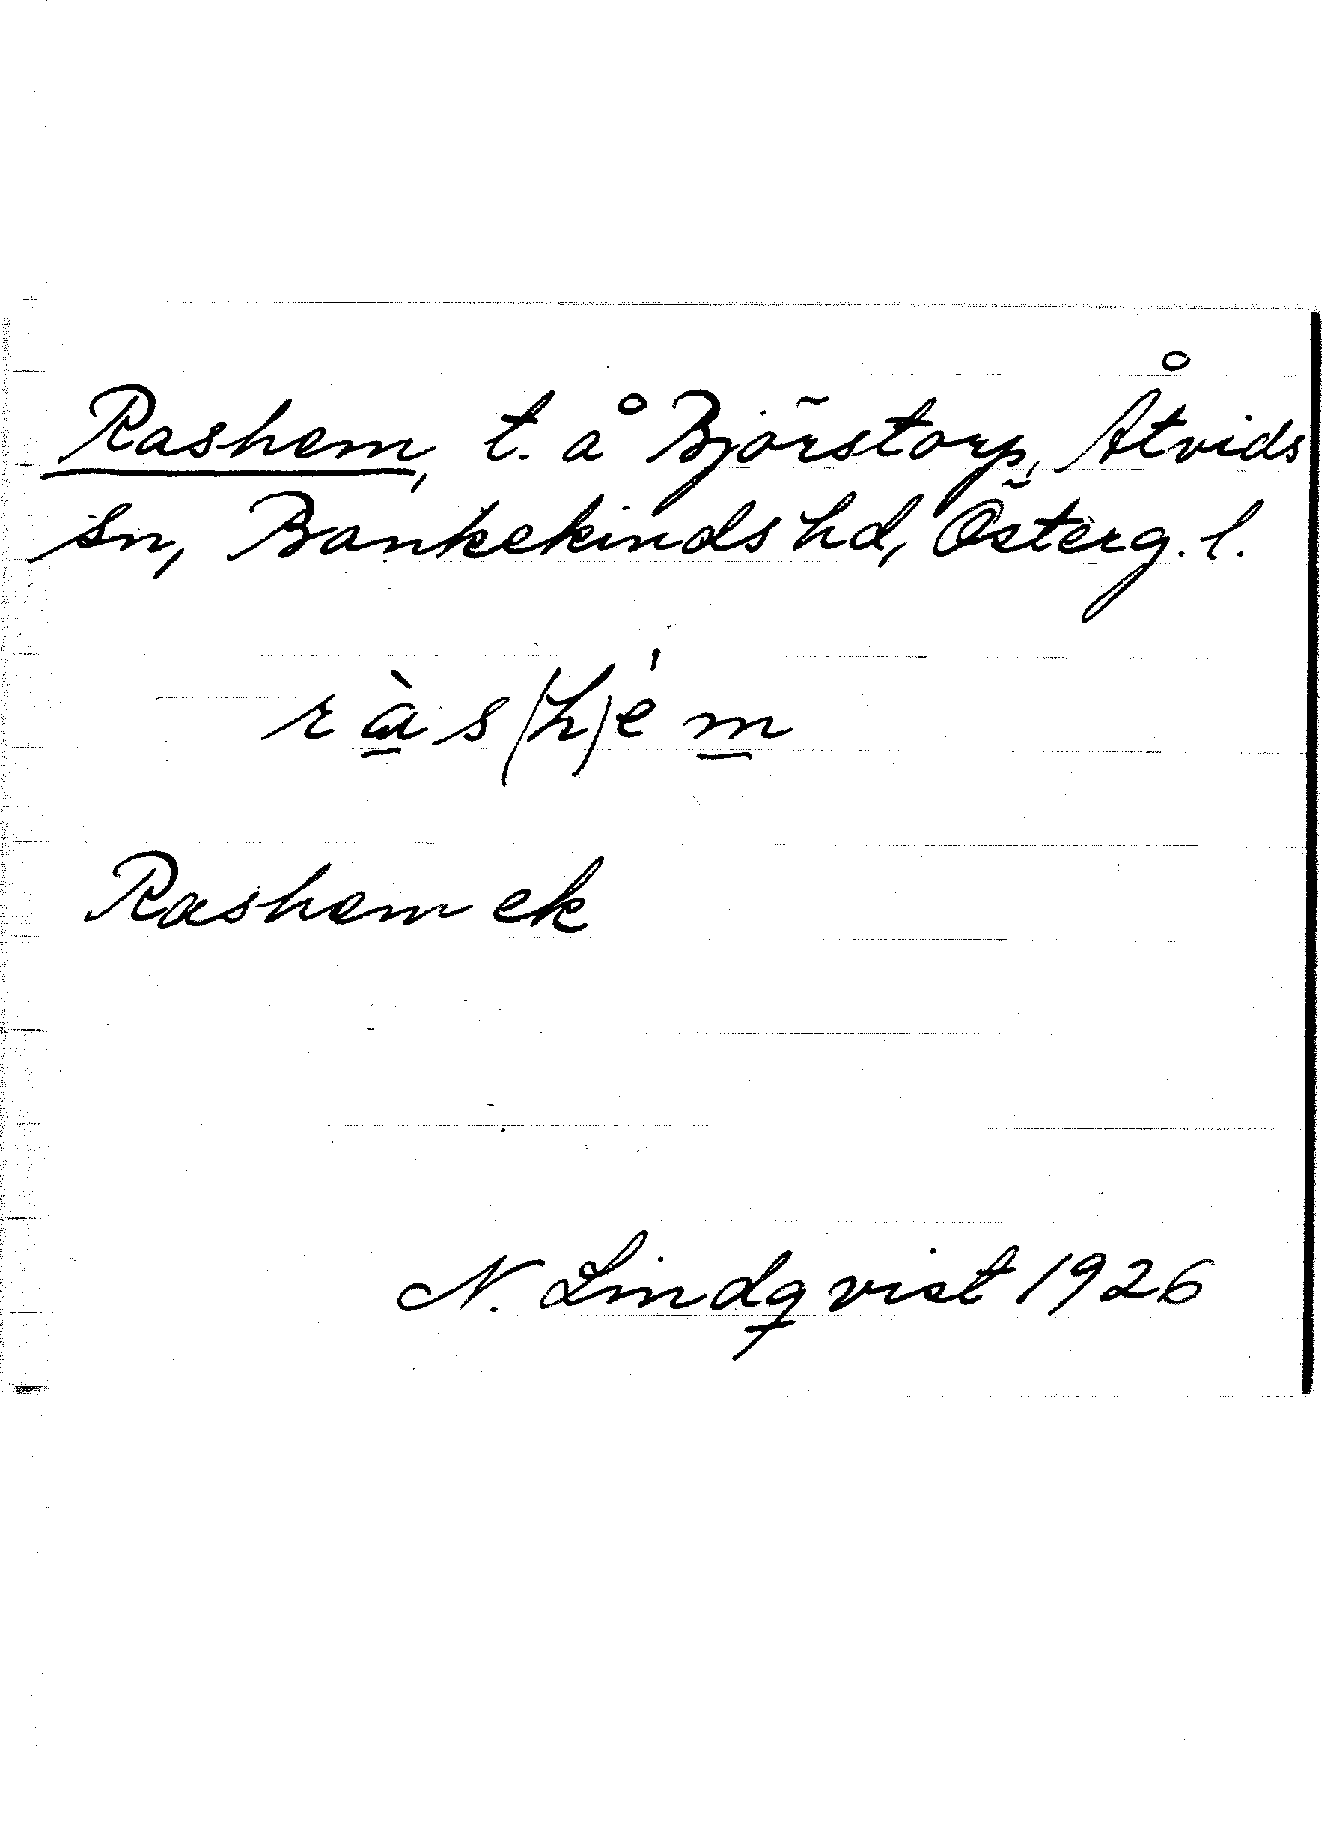 Rashem, t. å Björstorp, Åtvids
sn, Bankekinds hd, Österg. l.
ràs(h)ém
Rashem ek
N. Lindqvist 1926